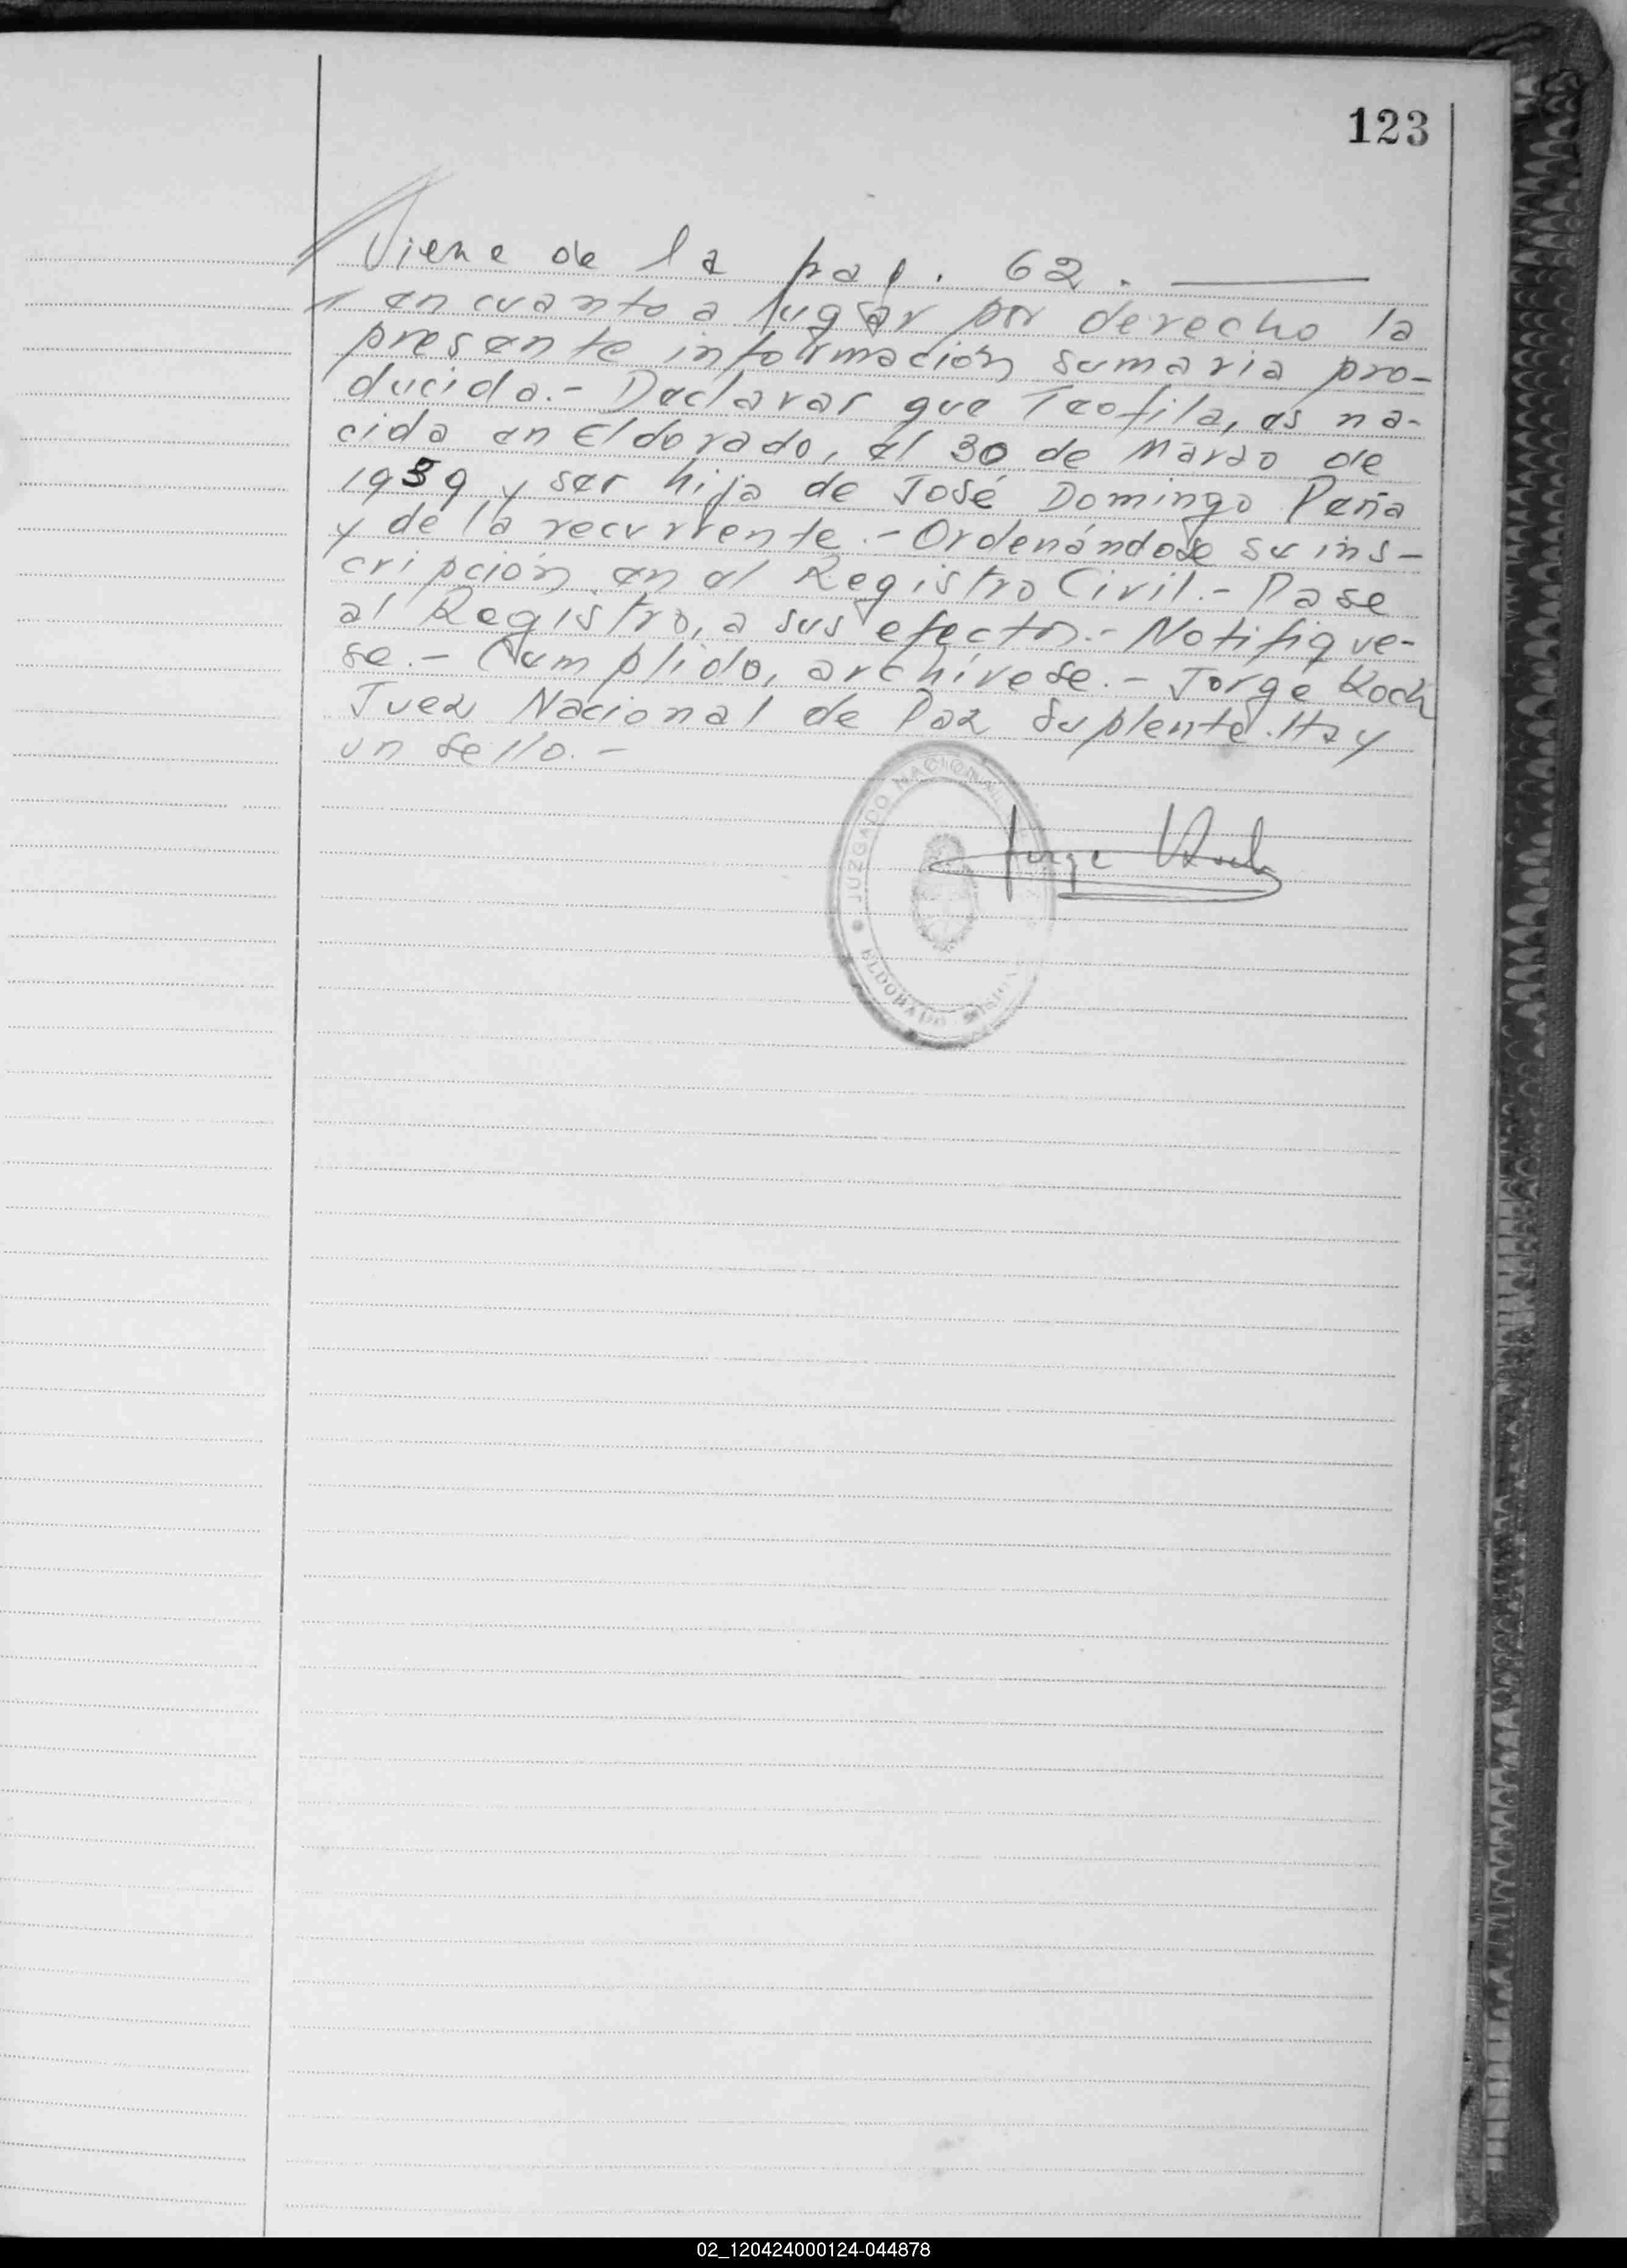 123
Viene de la pag. 62.
en cuanto a lugar por derecho la
presente información sumaria pro-
ducida.- Declarar que Teofila, es na-
cida en Eldorado, el 30 de Marzo de
1939 y ser hija de José Domingo Peña
y de la recurrente.- Ordenándose su ins-
cripción en el Registro Civil.- Pase
al Registro, a sus efectos.- Notifique-
se.- Cumplido, archívese.- Jorge Koch
Juez Nacional de Paz Suplente. Hay
un sello.-
JUZGADO NACIONAL
Jorge Koch
ELDORADO
02_120424000124-044878